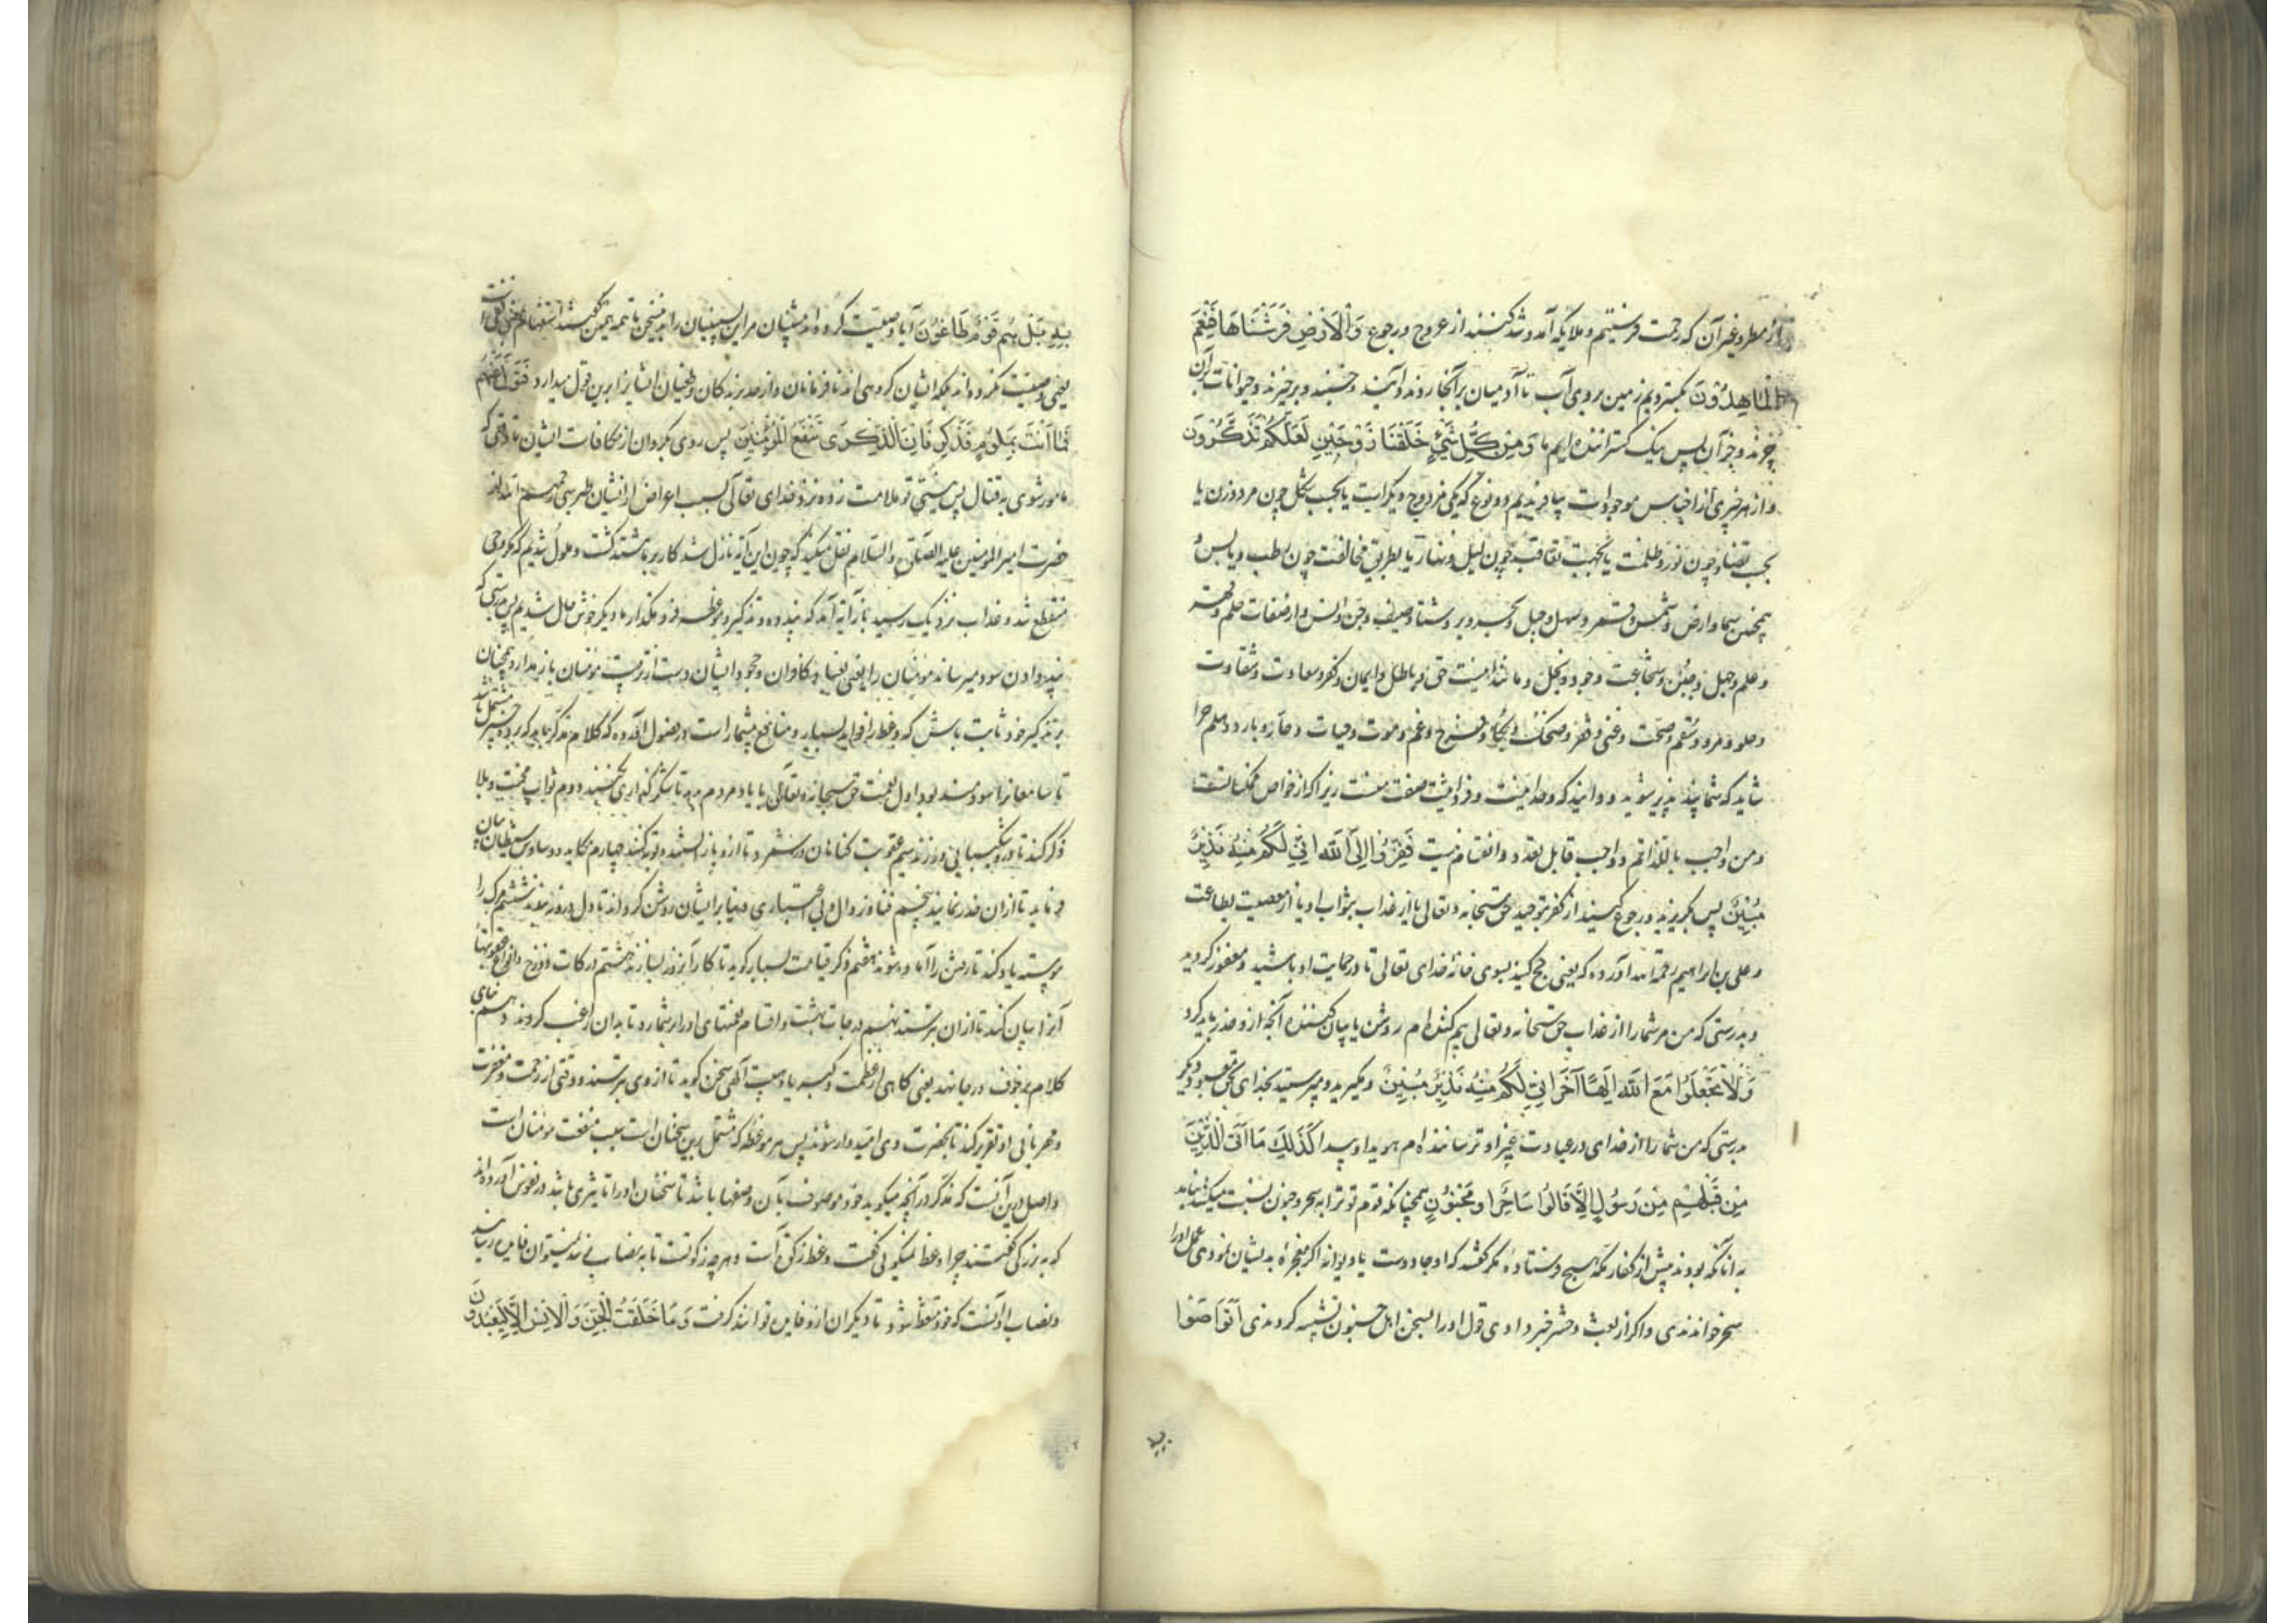 از مطر و غیر آن که رحمت فرستیم و ملایکه آمد و شد کنند از عروج و رجوع وَالْاَرْضِ فَرَشْنَاهَا فَنِعْمَ
الْمَاهِدُوْنَ بگستردیم زمین بر روی آب تا آدمیان بر آنجا روند و آیند و خسبند و برخیزند و حیوانات از آن
چرند و جز آن پس نیک گستراننده ایم ما وَمِنْ كُلِّ شَيْءٍ خَلَقْنَا زَوْجَيْنِ لَعَلَّكُمْ تَذَكَّرُوْنَ
و از هر چیزی از اجناس موجودات بیافریدیم دو نوع که یکی مزدوج دیگر است یا بحسب شکل چون مرد و زن یا
بحسب تضاد چون نور و ظلمت یا بجهت تعاقب چون لیل و نهار یا بطریق مخالفت چون رطب و یابس و
همچنین سما و ارض و شمس و قمر و سهل و جبل و بحر و بر و شتا و صیف و جن و انس و از صفات حلم و قهر
و علم و جهل و جبن و شجاعت و جود و بخل و مانند اینست حق و باطل و ایمان و کفر و سعادت و شقاوت
و حلو و مر و سقم و صحت و غنی و فقر و ضحک و بکا و فرح و غم و موت و حیات و حار و بارد و هلم جرا
شاید که شما پند پذیر شوید و دانید که وحدانیت و فردانیت صفت منست زیرا که از خواص ممکنا تست
و من واجب بالذاتم و واجب قابل تعدد و انقسام نیست فَفِرُّوْا اِلَى اللّٰه اِنِّي لَكُمْ مِنْهُ نَذِيْرٌ
مُبِيْنٌ پس بگریزید و رجوع کنید از کفر بتوحید حق سبحانه و تعالی یا از عذاب بثواب او یا از معصیت بطاعت
و علی بن ابراهیم رحمة الله آورده که یعنی حج کنید بسوی خانه خدای تعالی تا در حمایت او باشید و مغفور گردید
و بدرستی که من مر شما را از عذاب حق سبحانه و تعالی بیم کننده ام روشن یا بیان کننده آنچه از و حذر باید کرد
وَلَا تَجْعَلُوْا مَعَ اللّٰه اِلَهًا آخَرَ اِنِّي لَكُمْ مِنْهُ نَذِيْرٌ مُبِيْنٌ و مگیرید و مپرستید بخدای بحق معبود دیگر
بدرستی که من شما را از خدای در عبادت غیر او ترساننده ام هویدا و پیدا كَذَلِكَ مَا اَتَى الَّذِيْنَ
مِنْ قَبْلِهِمْ مِنْ رَسُوْلٍ اِلَّا قَالُوْا سَاحِرٌ اَو مَجْنُوْنٌ همچنانکه قوم تو ترا بسحر و جنون نسبت میکنند نیامد
به آنانکه بودند پیش از کفار مکه هیچ فرستاده مگر گفتند که او جادوست یا دیوانه اگر معجزه بدیشان نمودی عمل او را
سحر خواندندی و اگر از بعث و حشر خبر دادی قول او را بسخن اهل جنون تشبیه کردندی اَتَوَاصَوْا
بِهِ بَلْ هُمْ قَوْمٌ طَاغُوْنَ آیا وصیت کرده اند پیشینیان مر این پسینیان را بدین سخن تا همه همین گفتند استفهام بمعنی نفی است
یعنی وصیت نکرده اند بلکه ایشان گروهی اند نافرمانان و از حد برندگان و طغیان ایشانرا برین قول میدارد فَتَوَلَّ عَنْهُمْ
فَمَا اَنْتَ بِمَلُوْمٍ فَذَكِّرْ فَاِنَّ الذِّكْرَى تَنْفَعُ الْمُؤْمِنِيْنَ پس روی بگردان از مکافات ایشان تا وقتی که
مامور شوی به قتال پس نیستی تو ملامت زده نزد خدای تعالی بسبب اعراض از ایشان طبرسی رحمهم الله از
حضرت امیر المومنین علیه الصلوة و السلام نقل میکند که چون این آیه نازل شد کار بر ما سخت گشت و ملول شدیم که وحی
منقطع شد و عذاب نزدیک رسید باز آیه آمد که پند ده و تذکیر و موعظه فرو مگذار ما دیگر خوش حال شدیم پس بدرستی که
پند دادن سود میرساند مومنان را یعنی عناد کافران و جحود ایشان دست از تربیت مومنان باز مدار و همچنان
بر تذکیر خود ثابت باش که وعظ را فواید بسیار و منافع بیشمار است در فصول آورده که کلام مذکر باید که بر ده چیز مشتمل باشد
تا سامعانرا سودمند بود اول نعمت حق سبحانه و تعالی با یاد مردم دهد تا شکر گذاری کنند دوم ثواب محنت و بلا
ذکر کند تا در و شکیبایی ورزند سیم عقوبت گناهان برشمرد تا ازو باز ایستند و توبه کنند چهارم مکاید و وساوس شیطان بیان
فرماید تا از آن حذر نمایند پنجم فنا و زوال و بی اعتباری دنیا بر ایشان روشن گرداند تا دل درو نبندند ششم مرگ را
پیوسته یاد کند تا رفتن را آماده شوند هفتم ذکر قیامت بسیار گوید تا کار آنروز بسازند هشتم درکات دوزخ و انواع عقوبتهای
آنرا بیان کند تا از آن بترسند نهم درجات بهشت و اقسام نعمتهای او را برشمارد تا بدان راغب گردند دهم بنای
کلام بر خوف و رجا نهد یعنی گاهی از عظمت و کبریا و هیبت آلهی سخن گوید تا از وی بترسند و وقتی از رحمت و مغفرت
و مهربانی او تقریر کند تا بحضرت وی امیدوار شوند پس هر موعظه که مشتمل برین سخنان است سبب منفعت مومنان است
و اصل درین آنست که مذکر در آنچه میگوید خود موصوف بآن وصفها باشد تا سخنان او را تاثیری باشد در نفوس آورده اند
که به بزرگی گفتند چرا وعظ نمیگوئی گفت وعظ زکوة است و هر چه زکوتست تا به نصاب نرسد نمیتوان فایده رسانید
و نصاب او آنست که خود متعظ شود تا دیگران از و فایده توانند گرفت وَمَا خَلَقْتُ الْجِنَّ وَالْاِنْسَ اِلَّا لِيَعْبُدُوْنِ